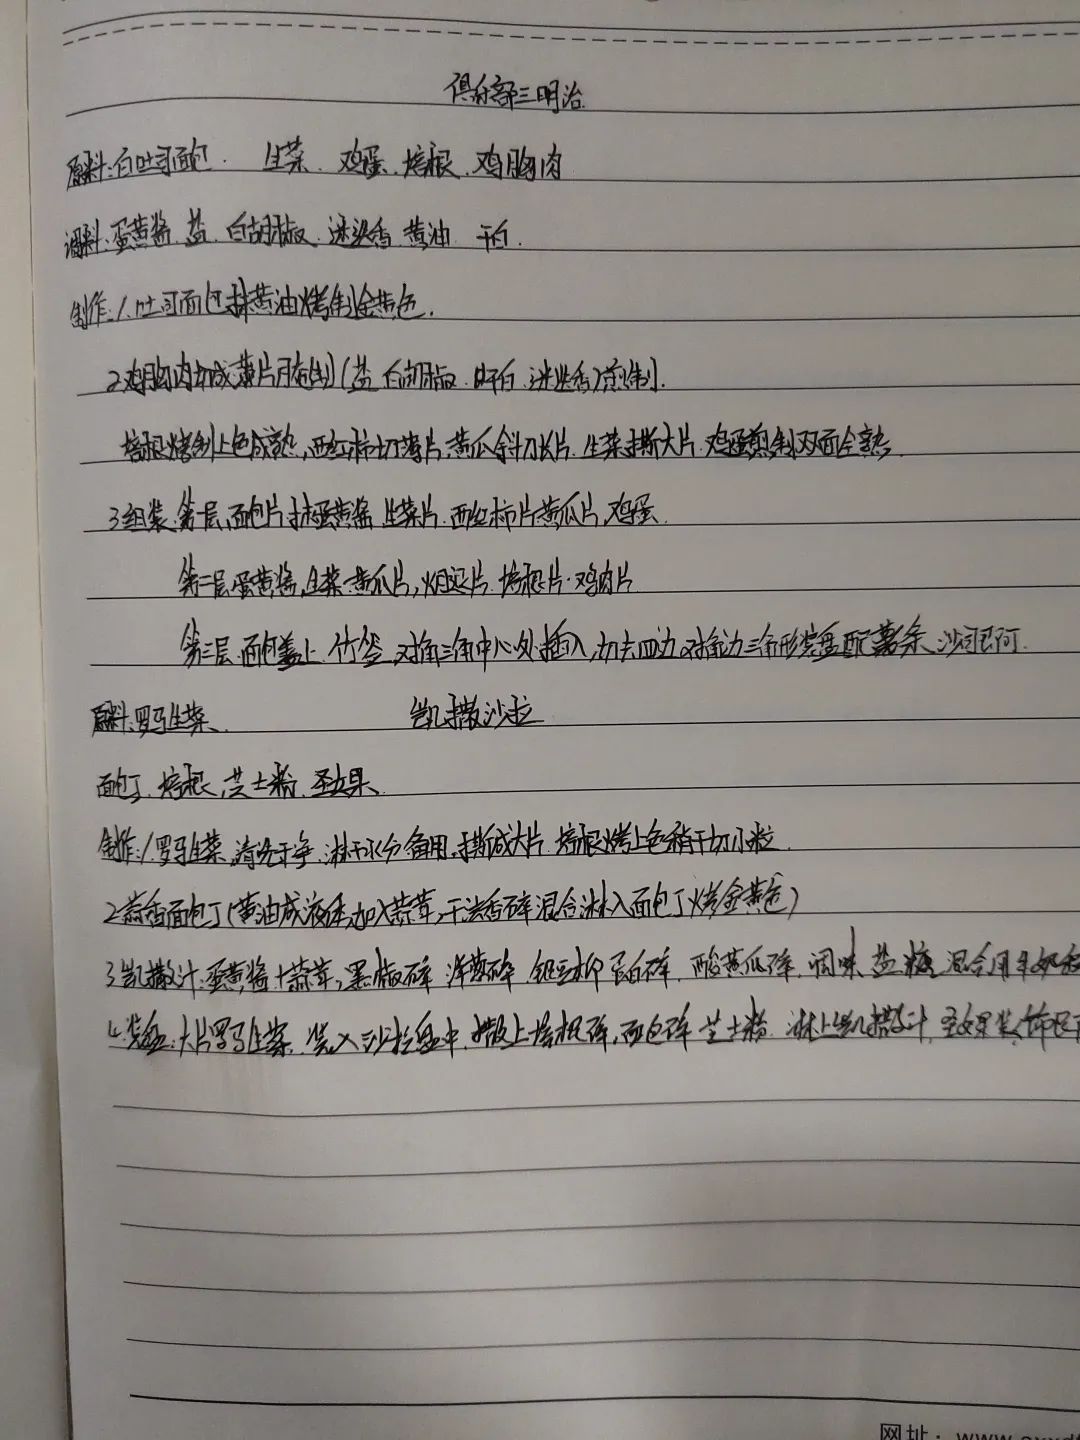 俱乐部三明治
原料:白吐司面包. 生菜. 鸡蛋. 培根. 鸡胸肉
调料:蛋黄酱. 盐. 白胡椒. 迷迭香 黄油 干白.
制作:1.吐司面包抹黄油烤制金黄色.
2鸡胸肉切成薄片腌制(盐 白胡椒. 干白. 迷迭香)煎制.
培根烤制上色成熟,西红柿切薄片.黄瓜斜刀长片.生菜手撕大片.鸡蛋煎制双面全熟.
3组装.第一层,面包片抹蛋黄酱 生菜片.西红柿片黄瓜片,鸡蛋.
第二层蛋黄酱,生菜.黄瓜片,火腿片.培根片.鸡肉片
第三层.面包盖上.竹签.对角三角中心处插入,切去四边.对角切三角形装盘配薯条.沙司即可.
凯撒沙拉
原料:罗马生菜.
面包丁.培根,芝士粉.圣女果.
制作:1.罗马生菜,清洗干净.淋干水分备用,手撕成大片.培根烤上色稍干切小粒.
2蒜香面包丁(黄油成液体,加入蒜茸,干法香碎混合淋入面包丁烤金黄色)
3凯撒汁:蛋黄酱+蒜茸,黑椒碎 洋葱碎.银鱼柳 蛋白碎.酸黄瓜碎.调味 盐 糖 混合用牛奶
4.装盘:大片罗马生菜.装入沙拉盘中,撒上培根碎,面包碎 芝士粉.淋上凯撒汁,圣女果装饰即可
网址: www.